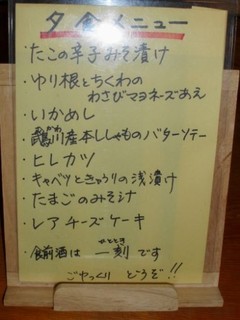 夕食メニュー
・たこの辛子みそ漬け
・ゆり根とちくわの
わさびマヨネーズあえ
・いかめし
むかわ
・鵡川産本ししゃものバターソテー
・ヒレカツ
・キャベツときゅうりの浅漬け
・たまごのみそ汁
・レアチーズケーキ
いっとき
・食前酒は 一刻 です
ごゆっくり どうぞ!!